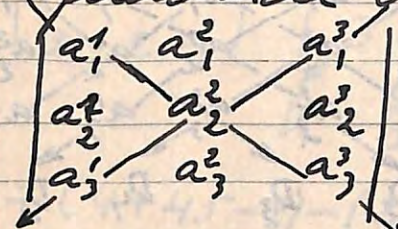 a₁¹ a₁² a₁³
a₂¹ a₂² a₂³
a₃¹ a₃² a₃³